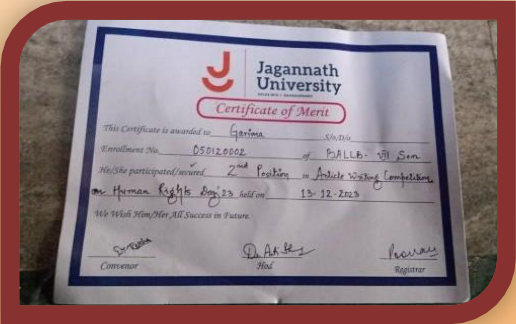 Jagannath
University
Certificate of Merit
This Certificate is awarded to Garima S/o,D/o
Enrollment No. 050120002 of BALLB- VII Sem
He/She participated/secured ✓ 2nd Position in Article Writing Competition
on Human Rights Day'23 held on 13-12-2023
We Wish Him/Her All Success in Future.
Convenor
Hod
Registrar